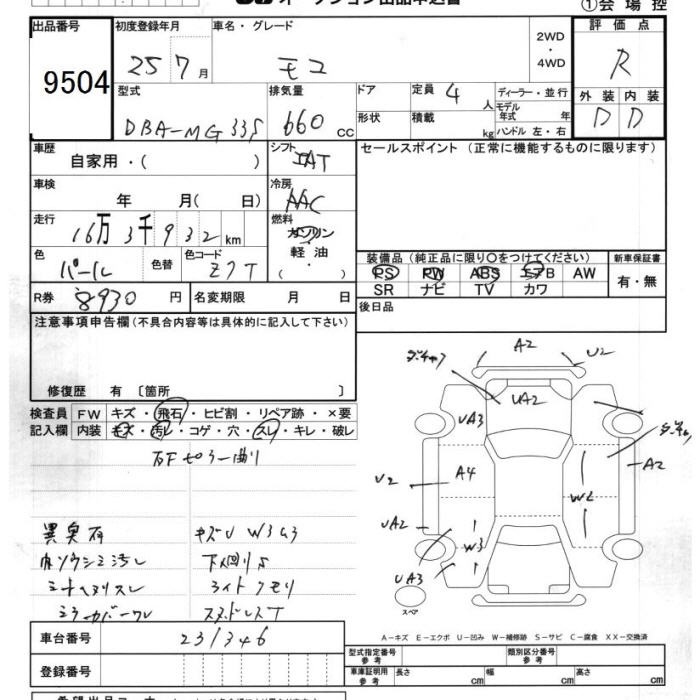 オークション出品申込書
①会場控
出品番号
9504
初度登録年月
25 7月
車名・グレード
モコ
2WD
・
4WD
評価点
R
型式
DBA-MG33S
排気量
660 CC
ドア
形状
定員 4 人
積載 kg
ディーラー・並行
モデル年式 年
ハンドル 左・右
外装 内装
D D
車歴
自家用・( )
シフト
IAT
セールスポイント (正常に機能するものに限ります)
車検
年 月( 日)
冷房
AAC
走行
16万 3千 932 km
燃料
ガソリン
軽油
・( )
色
パール
色替
色コード
Z7T
装備品 (純正品に限り○をつけてください)
PS PW ABS エアB AW
SR ナビ TV カワ
新車保証書
有・無
R券 8930 円
名変期限 月 日
後日品
注意事項申告欄 (不具合内容等は具体的に記入して下さい)
修復歴 有 〔箇所 〕
検査員 FW キズ・飛石・ヒビ割・リペア跡・×要
記入欄 内装 キズ・汚レ・コゲ・穴・スレ・キレ・破レ
右Fピラー曲り
異臭有
キズU W3U3
内ソウシミ汚レ
下回りS
シートヘタリスレ
ライトクモリ
ミラーカバーワレ
スタッドレスT
A2
U2
UA2
UA3
A4
U2
A2
W2
UA2
W3
UA3
スペア
A－キズ E－エクボ U－凹み W－補修跡 S－サビ C－腐食 XX－交換済
車台番号 231346
登録番号
型式指定番号 参考
類別区分番号 参考
車庫証明用 参考
長さ cm
幅 cm
高さ cm